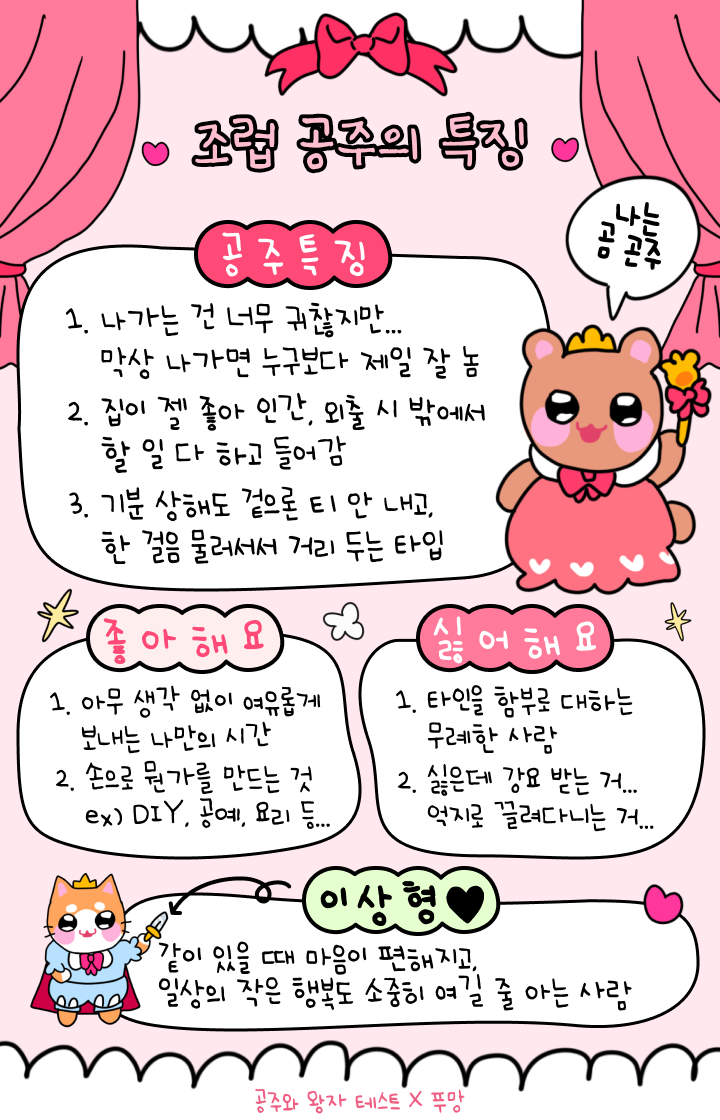 조럽 공주의 특징
나는
곰 곤주
공주특징
1. 나가는 건 너무 귀찮지만...
막상 나가면 누구보다 제일 잘 놈
2. 집이 젤 좋아 인간, 외출 시 밖에서
할 일 다 하고 들어감
3. 기분 상해도 겉으론 티 안 내고,
한 걸음 물러서서 거리 두는 타입
좋아해요
1. 아무 생각 없이 여유롭게
보내는 나만의 시간
2. 손으로 뭔가를 만드는 것
ex) DIY, 공예, 요리 등...
싫어해요
1. 타인을 함부로 대하는
무례한 사람
2. 싫은데 강요 받는 거...
억지로 끌려다니는 거...
이상형♥
같이 있을 때 마음이 편해지고,
일상의 작은 행복도 소중히 여길 줄 아는 사람
공주와 왕자 테스트 X 푸망